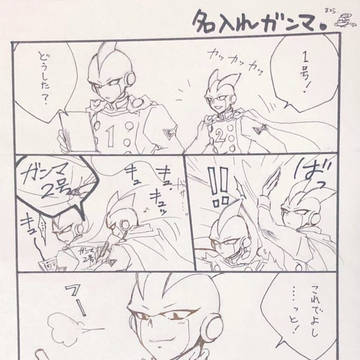 名入れガンマ。
1号!
カッカッカッ
どうした?
1
2
ばっ
!!
ガンマ
2号
キュッ
キュッ
キュ
ガンマ
2号
これでよし
……っと!
フー